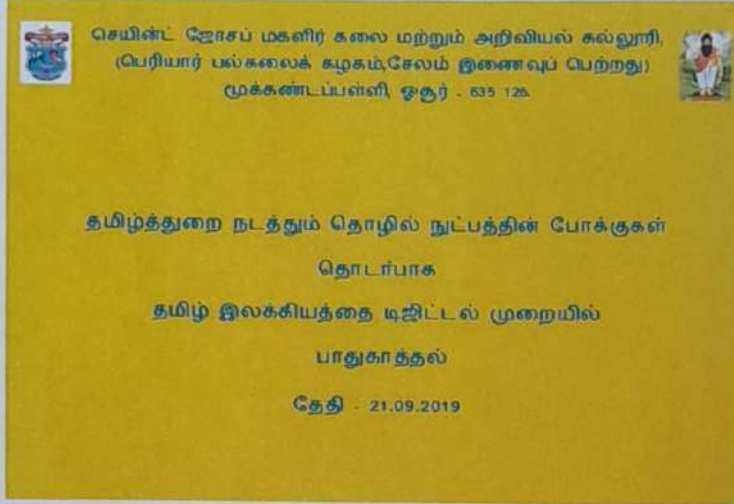 செயின்ட் ஜோசப் மகளிர் கலை மற்றும் அறிவியல் கல்லூரி,
(பெரியார் பல்கலைக் கழகம்,சேலம் இணைவுப் பெற்றது)
மூக்கண்டப்பள்ளி, ஓசூர் - 635 126.
தமிழ்த்துறை நடத்தும் தொழில் நுட்பத்தின் போக்குகள்
தொடர்பாக
தமிழ் இலக்கியத்தை டிஜிட்டல் முறையில்
பாதுகாத்தல்
தேதி - 21.09.2019